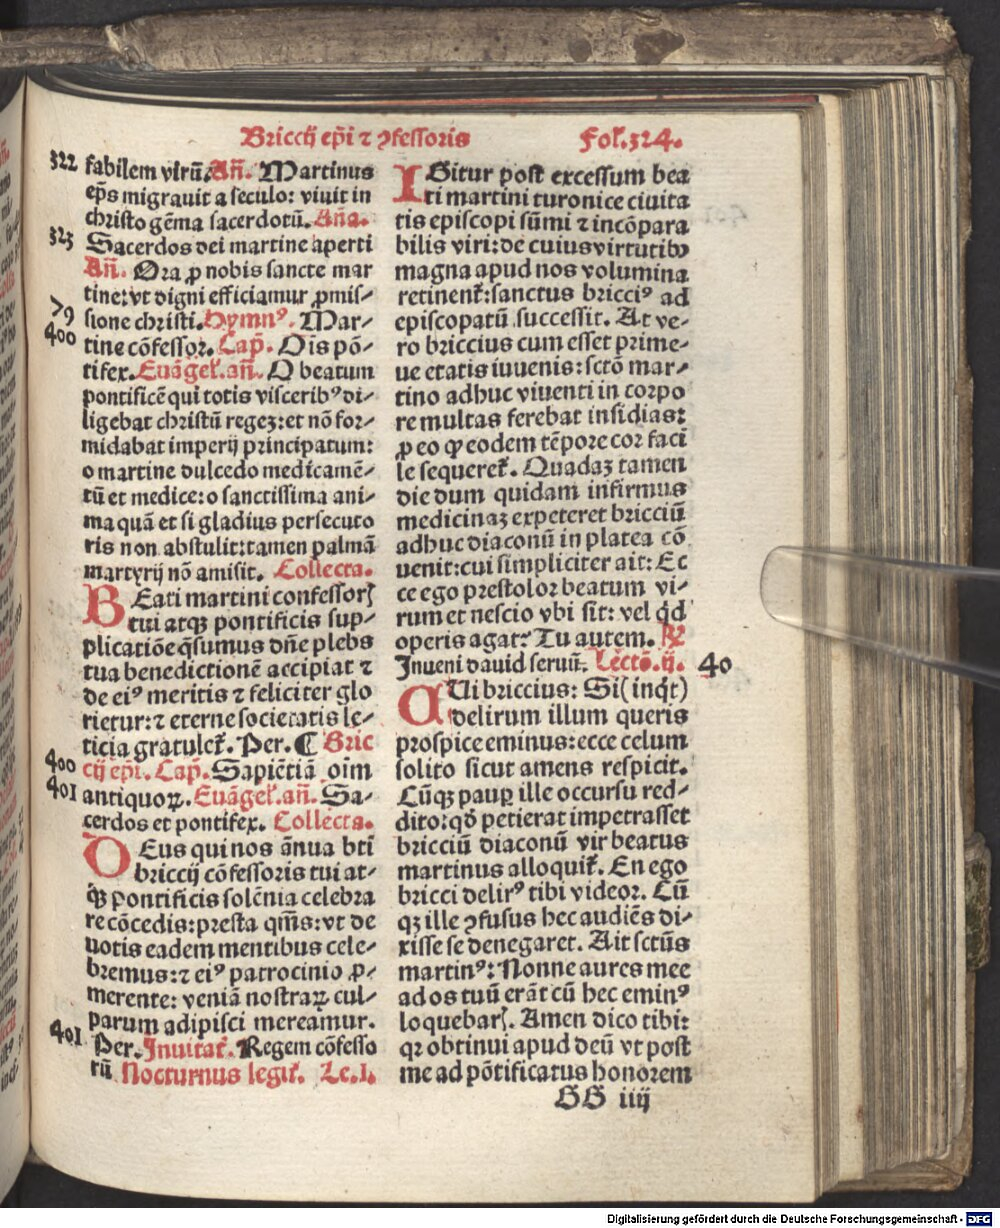 Briccij ep̄i ⁊ ꝯfessoris Fol̄.324.
322 fabilem virū. Añ. Martinus
ep̄s migrauit a seculo: viuit in
christo gēma sacerdotū. Aña.
323 Sacerdos dei martine aperti
Añ. Ora ꝓ nobis sancte mar
tine: vt digni efficiamur ꝓmis⸗
79 sione christi. Hymnꝰ. Mar⸗
400 tine cōfessor. Cap̄. Oīs pō⸗
tifex. Euāgel̄. añ. O beatum
pontificē qui totis visceribꝰ di⸗
ligebat christū regeꝫ: et nō for⸗
midabat imperij principatum:
o martine dulcedo medicamē⸗
tū et medice: o sanctissima ani⸗
ma quā et si gladius persecuto
ris non abstulit: tamen palmā
martyrij nō amisit. Collecta.
BEati martini confessorꝭ
tui atqꝫ pontificis sup⸗
plicatiōe q̄sumus dn̄e plebs
tua benedictionē accipiat ⁊
de eiꝰ meritis ⁊ feliciter glo
rietur: ⁊ eterne societatis le⸗
ticia gratulet̄. Per. ¶ Bric
400 cij ep̄i. Cap̄. Sapiētiā oīm
401 antiquoꝝ. Euāgel̄. añ. Sa⸗
cerdos et pontifex. Collecta.
DEus qui nos ānua bti
briccij cōfessoris tui at⸗
qꝫ pontificis solēnia celebra
re cōcedis: presta qm̄s: vt de
uotis eadem mentibus cele⸗
bremus: ⁊ eiꝰ patrocinio ꝓ⸗
merente: veniā nostraꝝ cul⸗
parum adipisci mereamur.
401 Per. Inuitat̄. Regem cōfesso
rū Nocturnus legit̄. Le.i.
IGitur post excessum bea
ti martini turonice ciuita
tis episcopi sūmi ⁊ incōpara
bilis viri: de cuius virtutibꝰ
magna apud nos volumina
retinent̄: sanctus bricciꝰ ad
episcopatū successit. At ve⸗
ro briccius cum esset prime⸗
ue etatis iuuenis: sctō mar⸗
tino adhuc viuenti in corpo
re multas ferebat insidias:
ꝓ eo ꝙ eodem tēpore cor faci
le sequeret̄. Quadaꝫ tamen
die dum quidam infirmus
medicinaꝫ expeteret bricciū
adhuc diaconū in platea cō
uenit: cui simpliciter ait: Ec
ce ego prestolor beatum vi⸗
rum et nescio vbi sit: vel qd̄
operis agat? Tu autem. ℟
Inueni dauid seruū. Lectō.ij. 40
CUi briccius: Si (inqt̄)
delirum illum queris
prospice eminus: ecce celum
solito sicut amens respicit.
Cūqꝫ pauꝑ ille occursu red⸗
dito: qd̄ petierat impetrasset
bricciū diaconū vir beatus
martinus alloquit̄. En ego
bricci delirꝰ tibi videor. Cū
qꝫ ille ꝯfusus hec audiēs di⸗
xisse se denegaret. Ait sctūs
martinꝰ: Nonne aures mee
ad os tuū erāt cū hec eminꝰ
loquebarꝭ. Amen dico tibi:
qꝛ obtinui apud deū vt post
me ad pōtificatus honorem
GG iiij
Digitalisierung gefördert durch die Deutsche Forschungsgemeinschaft - DFG